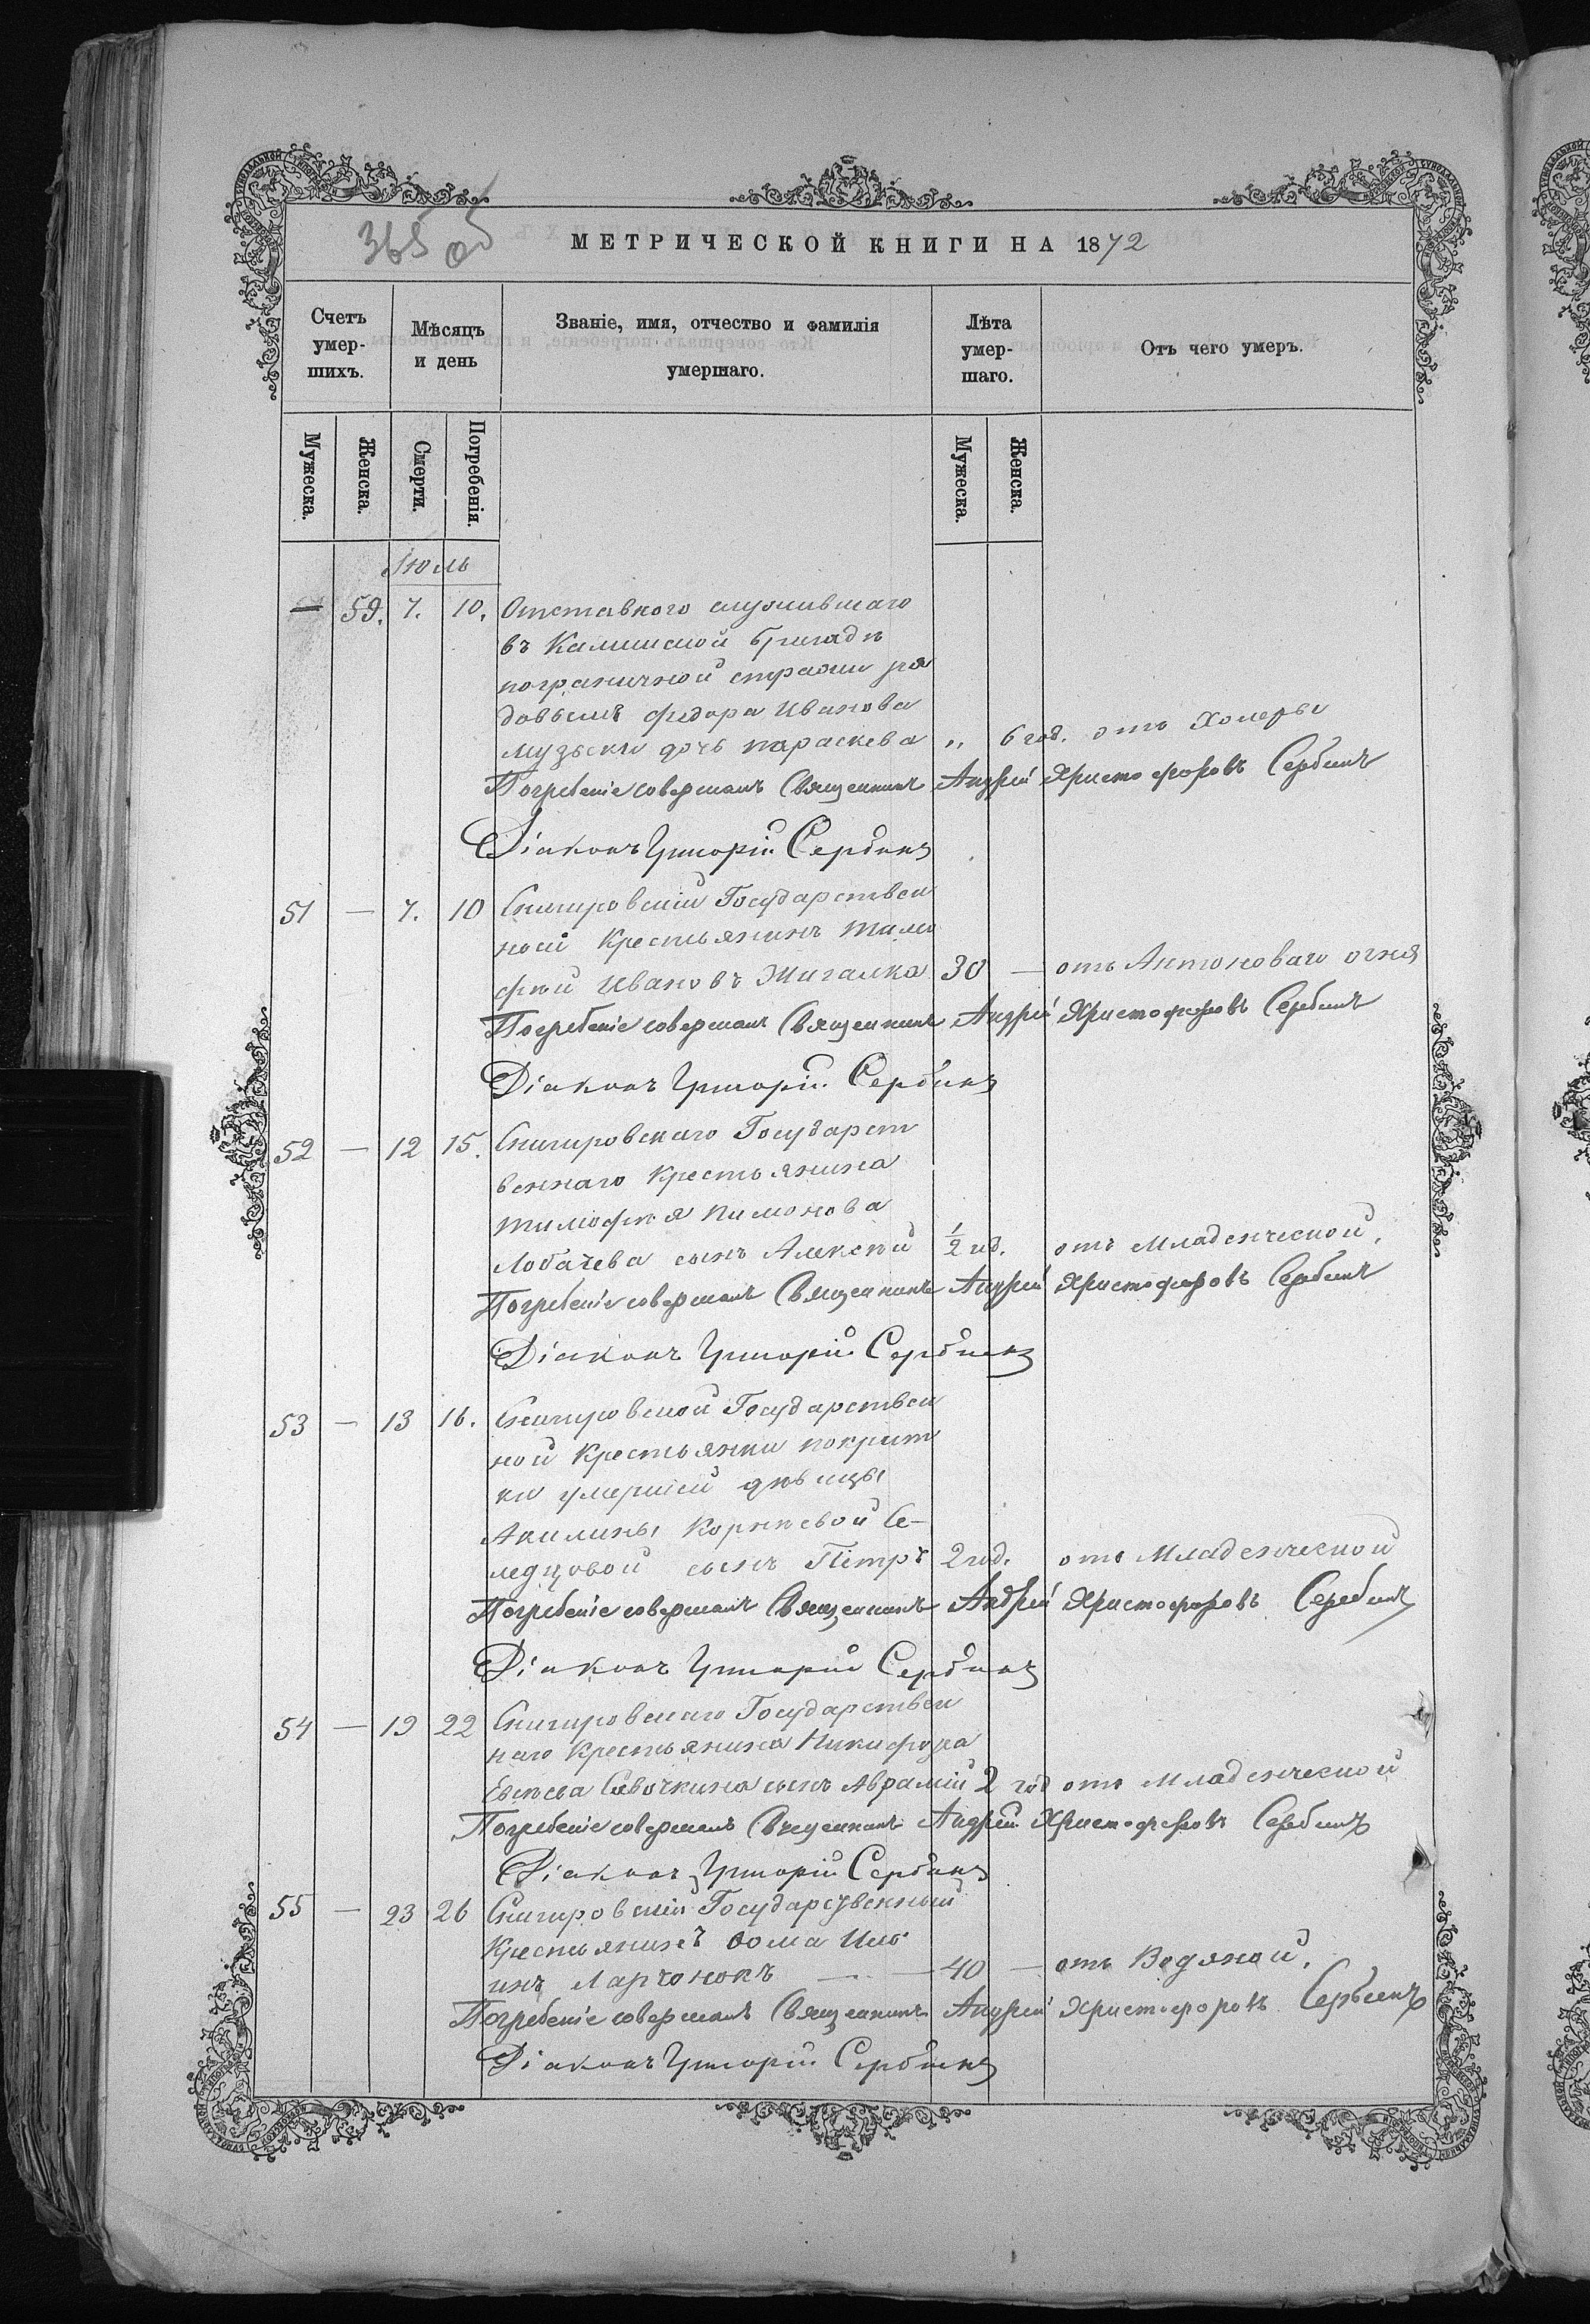 365 об
МЕТРИЧЕСКОЙ КНИГИ НА 1872
Счетъ умер- шихъ.
Мѣсяцъ и день
Званіе, имя, отчество и фамилія умершаго.
Лѣта умер- шаго.
Отъ чего умеръ.
Мужеска. Женска. Смерти. Погребенія. Мужеска. Женска.
Июль
— 59. 7. 10. Отставного служившаго
въ Калишской бригадѣ
пограничной стражи ря
довымъ Федора Иванова
Музыки дочь Параскева „ 6 год. отъ Холеры
Погребеніе совершалъ Священникъ Андрей Христофоровъ Сербинъ
Діаконъ Григорій Сербинъ
51 — 7. 10 Снигировскій Государствен
ный Крестьянинъ Тимо
фей Ивановъ Жигалка 30 — отъ Антоноваго огня
Погребеніе совершалъ Священникъ Андрей Христофоровъ Сербинъ
Діаконъ Григорій Сербинъ
52 — 12 15. Снигировскаго Государст
веннаго Крестьянина
Тимофея Пимонова
Лобачева сынъ Алексѣй ½ год. отъ Младенческой.
Погребеніе совершалъ Священникъ Андрей Христофоровъ Сербинъ
Діаконъ Григорій Сербинъ
53 — 13 16. Снигировской Государствен
ной Крестьянки покрит
ки умершей дѣвицы
Акилины Корнѣевой Се-
ледцовой сынъ Петръ 2 год. отъ Младенческой
Погребеніе совершалъ Священникъ Андрей Христофоровъ Сербинъ
Діаконъ Григорій Сербинъ
54 — 19 22 Снигировскаго Государствен
наго Крестьянина Никифора
Евсѣева Савочкина сынъ Аврамій 2 год отъ Младенческой
Погребеніе совершалъ Священникъ Андрей Христофоровъ Сербинъ
Діаконъ Григорій Сербинъ
55 — 23 26 Снигировскій Государственный
Крестьянинъ Ѳома Иль
инъ Ларчонокъ — — 40 — отъ Водяной.
Погребеніе совершалъ Священникъ Андрей Христофоровъ Сербинъ
Діаконъ Григорій Сербинъ